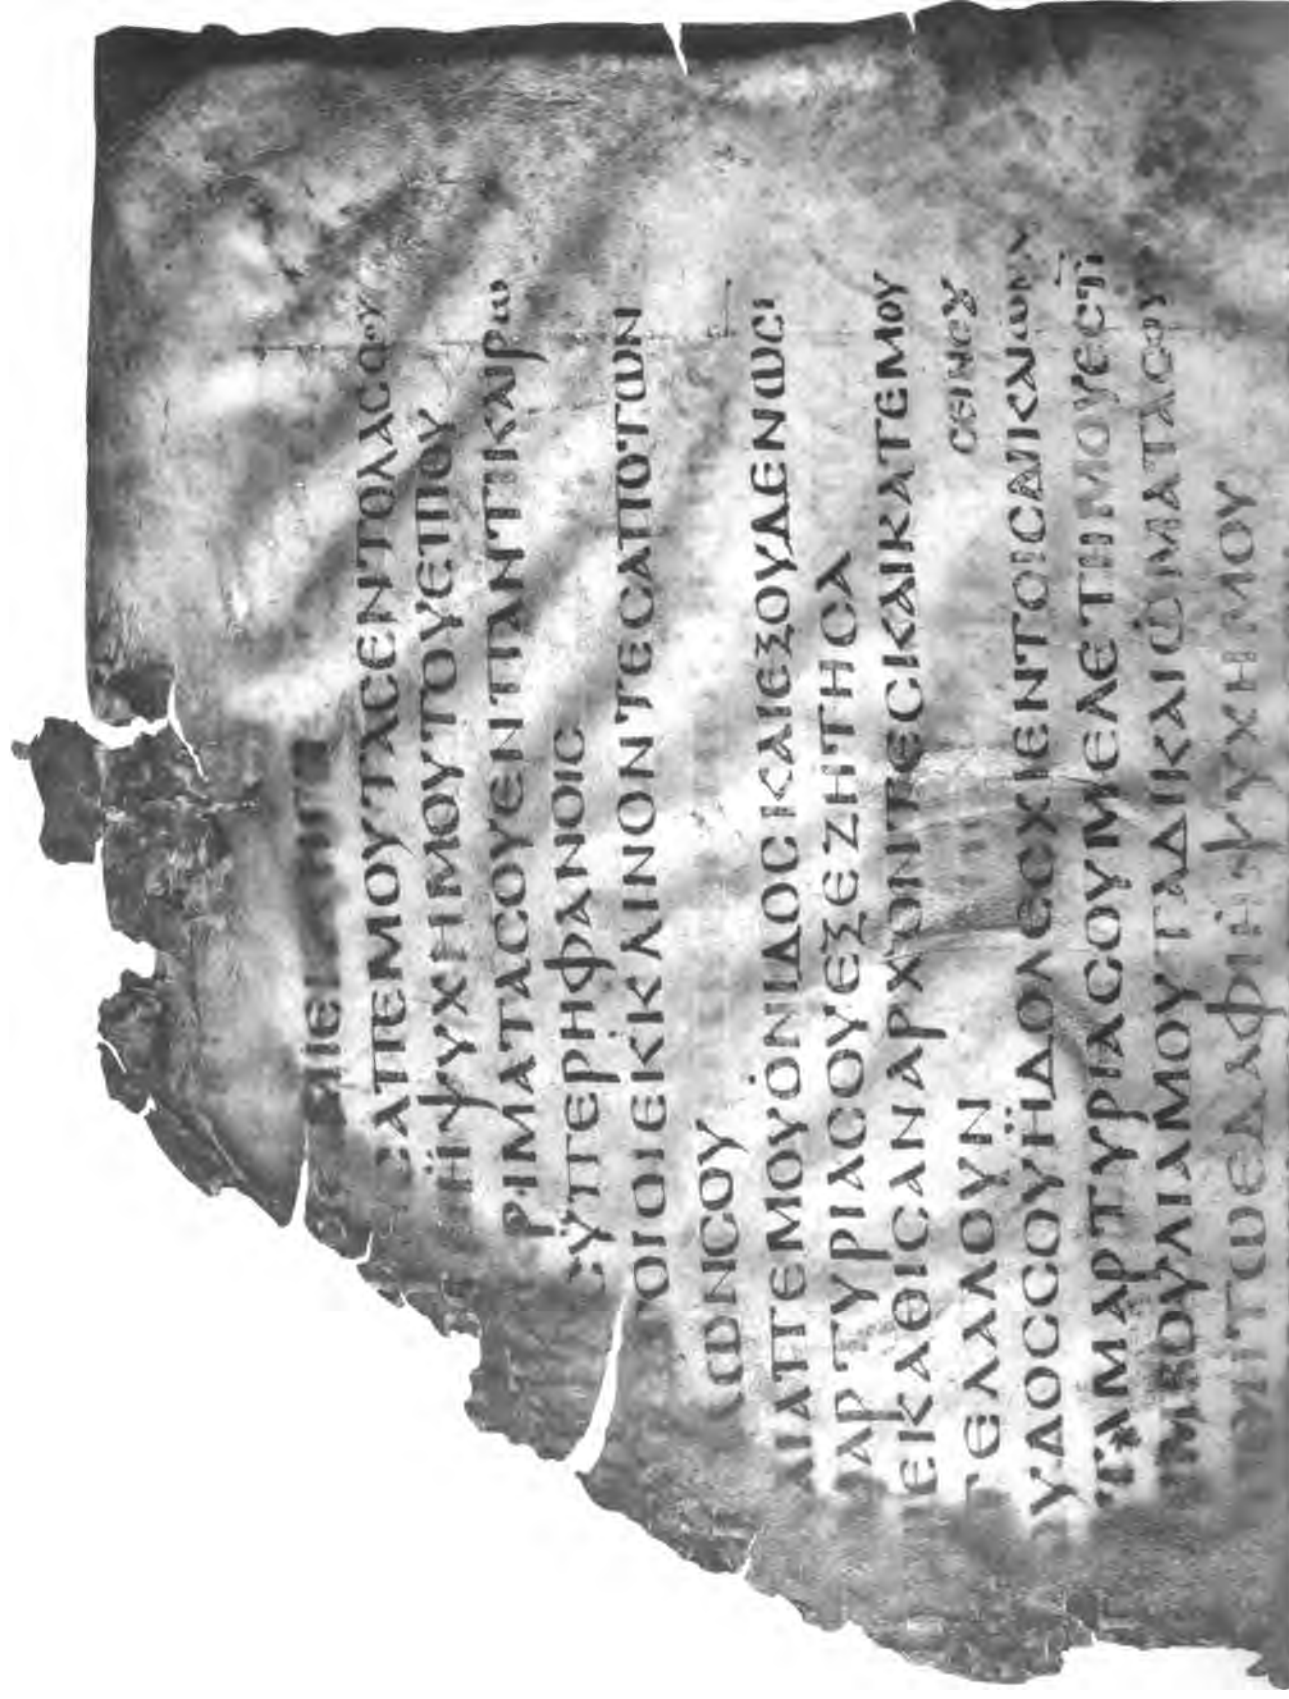 ΜΙΕΝΤΗΓΗ
CΑΠΕΜΟΥΤΑCΕΝΤΟΛΑCCΟΥ
ΗΨΥΧΗΜΟΥΤΟΥΕΠΙΘΥ
ΡΙΜΑΤΑCΟΥΕΝΠΑΝΤΙΚΑΙΡΩ
CΫΠΕΡΗΦΑΝΟΙC
ΟΙΟΙΕΚΚΛΙΝΟΝΤΕCΑΠΟΤΩΝ
ΛΩΝCΟΥ
ΛΙΑΠΕΜΟΥΟΝΙΔΟCΚΑΙΕΞΟΥΔΕΝΩCΙ
ΑΡΤΥΡΙΑCΟΥΕΞΕΖΗΤΗCΑ
ΕΚΑΘΙCΑΝΑΡΧΟΝΤΕCΚΑΙΚΑΤΕΜΟΥ
ΤΕΛΑΛΟΥΝ CΕΙΝCΟΥ
ΥΔΟCCΟΥΗΔΟΛΕCΧΙΕΝΤΟΙCΔΙΚΑΙΩΜΑ
ΤΑΜΑΡΤΥΡΙΑCΟΥΜΕΛΕΤΗΜΟΥΕCΤΙ
ΜΒΟΥΛΙΑΜΟΥΤΑΔΙΚΑΙΩΜΑΤΑCΟΥ
ΗΘΗΤΩΕΔΑΦΙΗΨΥΧΗΜΟΥ